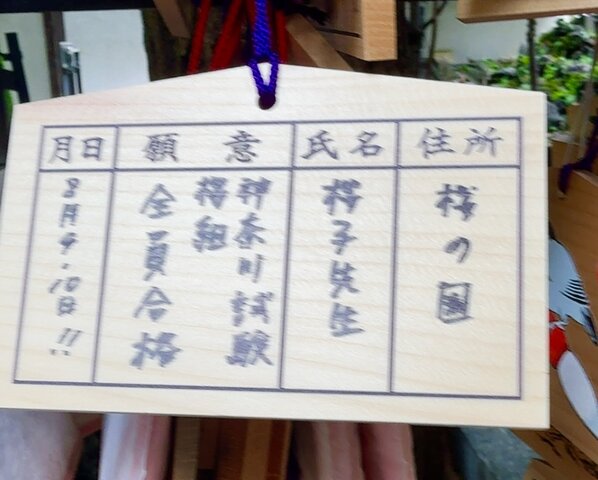 住所
桜の国
氏名
桜子先生
願意
神奈川試験
桜組
全員合格
月日
8月9.10日!!